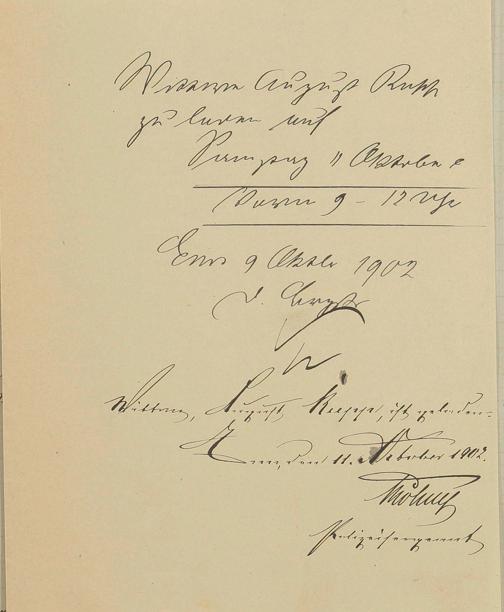 Wittwe August Rupp
zu laden auf
Samstag 11 Oktober
Vorm 9 - 12 Uhr
Ems 9 Oktbr 1902
D. Brgstr
Wittwe, August Rupp, ist geladen.
Ems, den 11. Oktober 1902.
Polizeisergeant